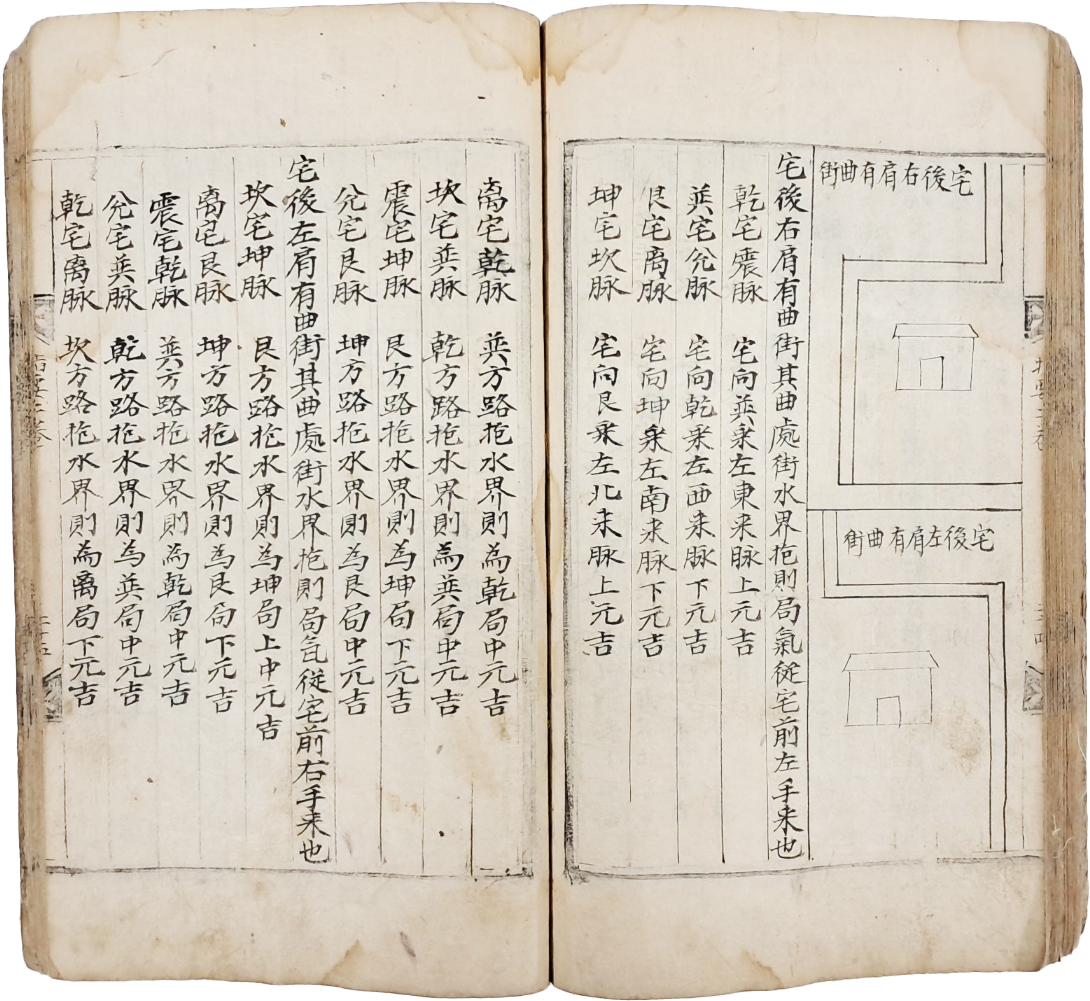 宅後右肩有曲街
宅後左肩有曲街
宅後右肩有曲街其曲處街水界抱則局氣從宅前左手来也
乾宅震脉 宅向巽乘左東来脉上元吉
巽宅兊脉 宅向乾乘左西来脉下元吉
艮宅离脉 宅向坤乘左南来脉下元吉
坤宅坎脉 宅向艮乘左北来脉上元吉
离宅乾脉 巽方路抱水界則為乾局中元吉
坎宅巽脉 乾方路抱水界則為巽局中元吉
震宅坤脉 艮方路抱水界則為坤局下元吉
兊宅艮脉 坤方路抱水界則為艮局中元吉
宅後左肩有曲街其曲處街水界抱則局氣從宅前右手来也
坎宅坤脉 艮方路抱水界則為坤局上中元吉
离宅艮脉 坤方路抱水界則為艮局下元吉
震宅乾脉 巽方路抱水界則為乾局中元吉
兊宅巽脉 乾方路抱水界則為巽局中元吉
乾宅离脉 坎方路抱水界則為离局下元吉